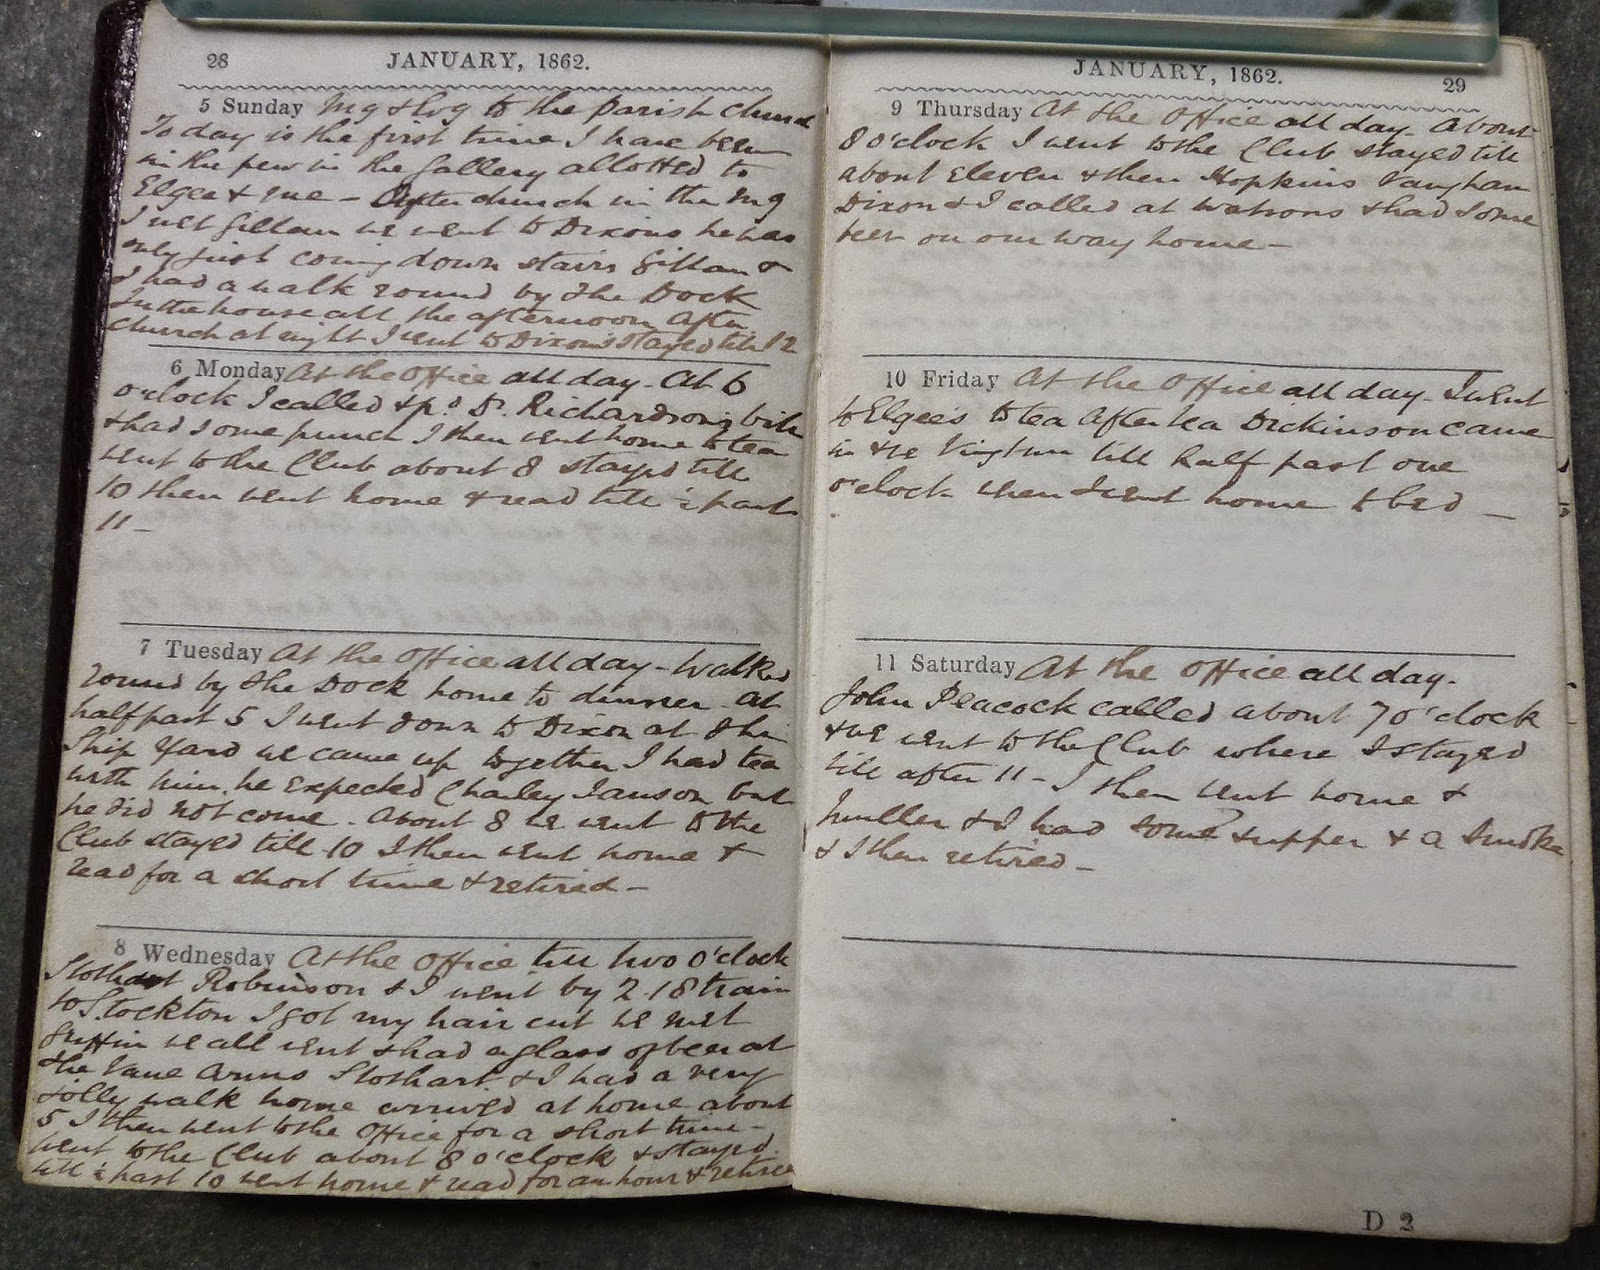 28
JANUARY, 1862.
5 Sunday Mg & to the Parish Church
To day is the first time I have been
in the pew in the Gallery allotted to
Elgee & me – After church in the Mg
I met Gillam we went to Dixons he was
only just coming down stairs Gillam &
I had a walk round by the Dock
In the house all the afternoon After
church at night I went to Dixons stayed till 12
6 Monday At the Office all day. At 6
o'clock I called & pd Dr. Richardson's bill
& had some punch I then went home to tea
went to the Club about 8 stayed till
10 then went home & read till ½ past
11 –
7 Tuesday At the Office all day – Walked
round by the Dock home to dinner. At
half past 5 I went down to Dixon at the
Ship Yard we came up together I had tea
with him. he expected Charley Ianson but
he did not come. About 8 we went to the
Club stayed till 10 I then went home &
read for a short time & retired –
8 Wednesday At the Office till two o'clock
Stothart Robinson & I went by 2.18 train
to Stockton I got my hair cut we met
Griffin we all went & had a glass of beer at
the Vane Arms Stothart & I had a very
jolly walk home arrived at home about
5 I then went to the Office for a short time –
went to the Club about 8 o'clock & stayed
till ½ past 10 went home & read for an hour & retired
JANUARY, 1862.
29
9 Thursday At the Office all day. About
8 o'clock I went to the Club stayed till
about Eleven & then Hopkins Vaughan
Dixon & I called at Watsons & had some
beer on our way home –
10 Friday At the Office all day. I went
to Elgee's to tea After tea Dickinson came
in & we till half past one
o'clock when I went home to bed –
11 Saturday At the Office all day.
John Peacock called about 7 o'clock
& we went to the Club where I stayed
till after 11 – I then went home &
Muller & I had some supper & a Smoke
& I then retired –
D 2